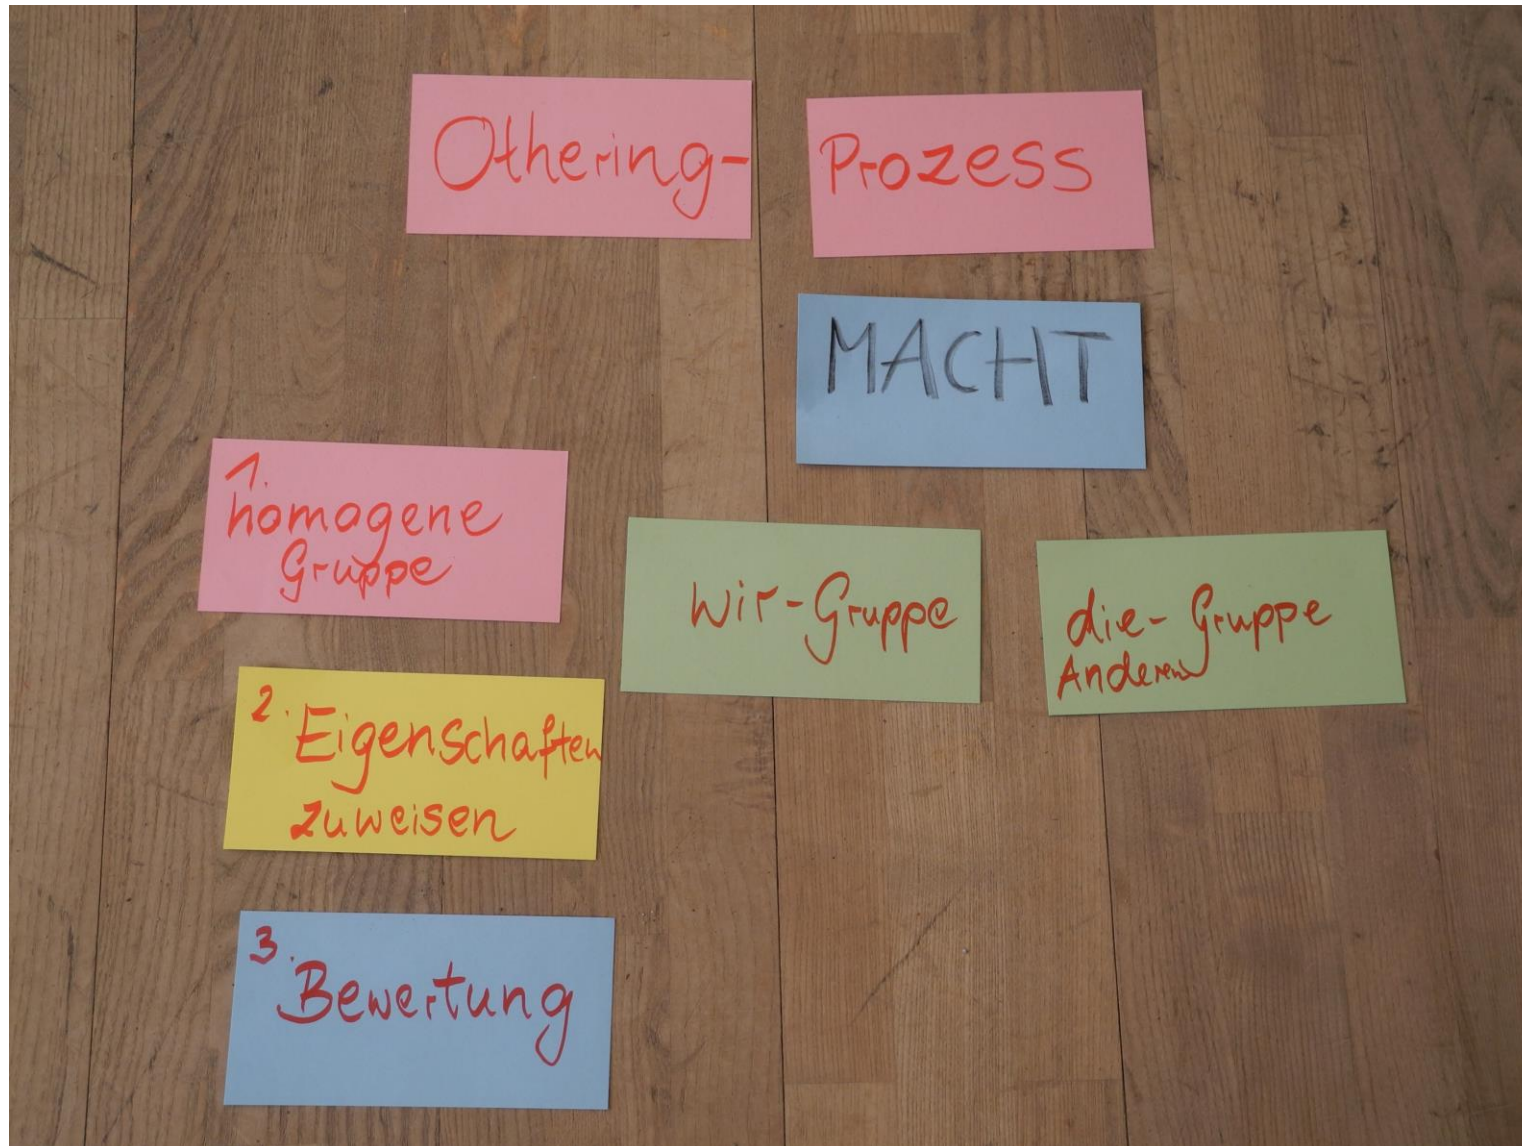 Othering-
Prozess
MACHT
1.
homogene
Gruppe
Wir-Gruppe
die-Gruppe
Anderen
2. Eigenschaften
zuweisen
3.
Bewertung